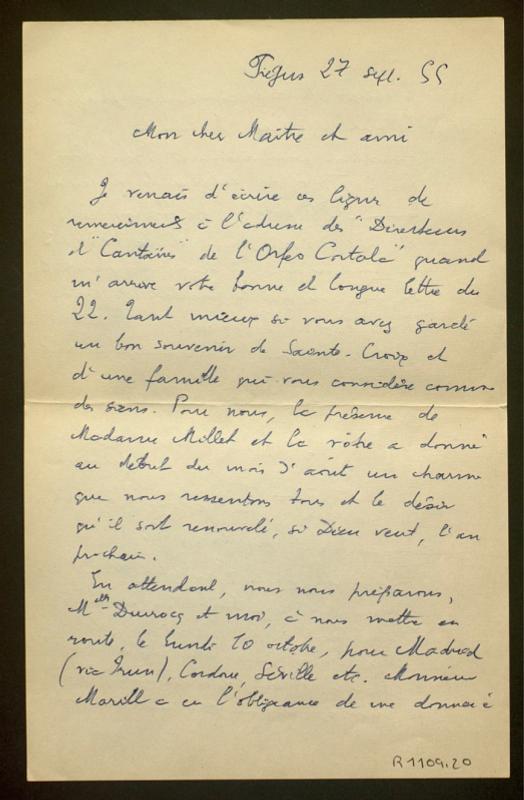 27 sept. 55
Mon cher Maître et ami
Je venais d'écrire ces lignes de
remerciements à l'adresse des "Directeurs
et "Cantaires" de l'Orfeo Catala" quand
m'arrive votre bonne et longue lettre du
22. Tant mieux si vous avez gardé
un bon souvenir de Sainte-Croix et
d'une famille qui vous considère comme
des siens. Pour nous, la présence de
Madame Millet et la vôtre a donné
au début du mois d'août un charme
que nous ressentons tous et le désir
qu'il soit renouvelé, si Dieu veut, l'an
prochain.
En attendant, nous nous préparons,
et moi, à nous mettre en
route, le lundi 10 octobre, pour Madrid
(via Irun), Cordoue, Séville etc. Monsieur
Marill a eu l'obligeance de me donner
R 1109.20